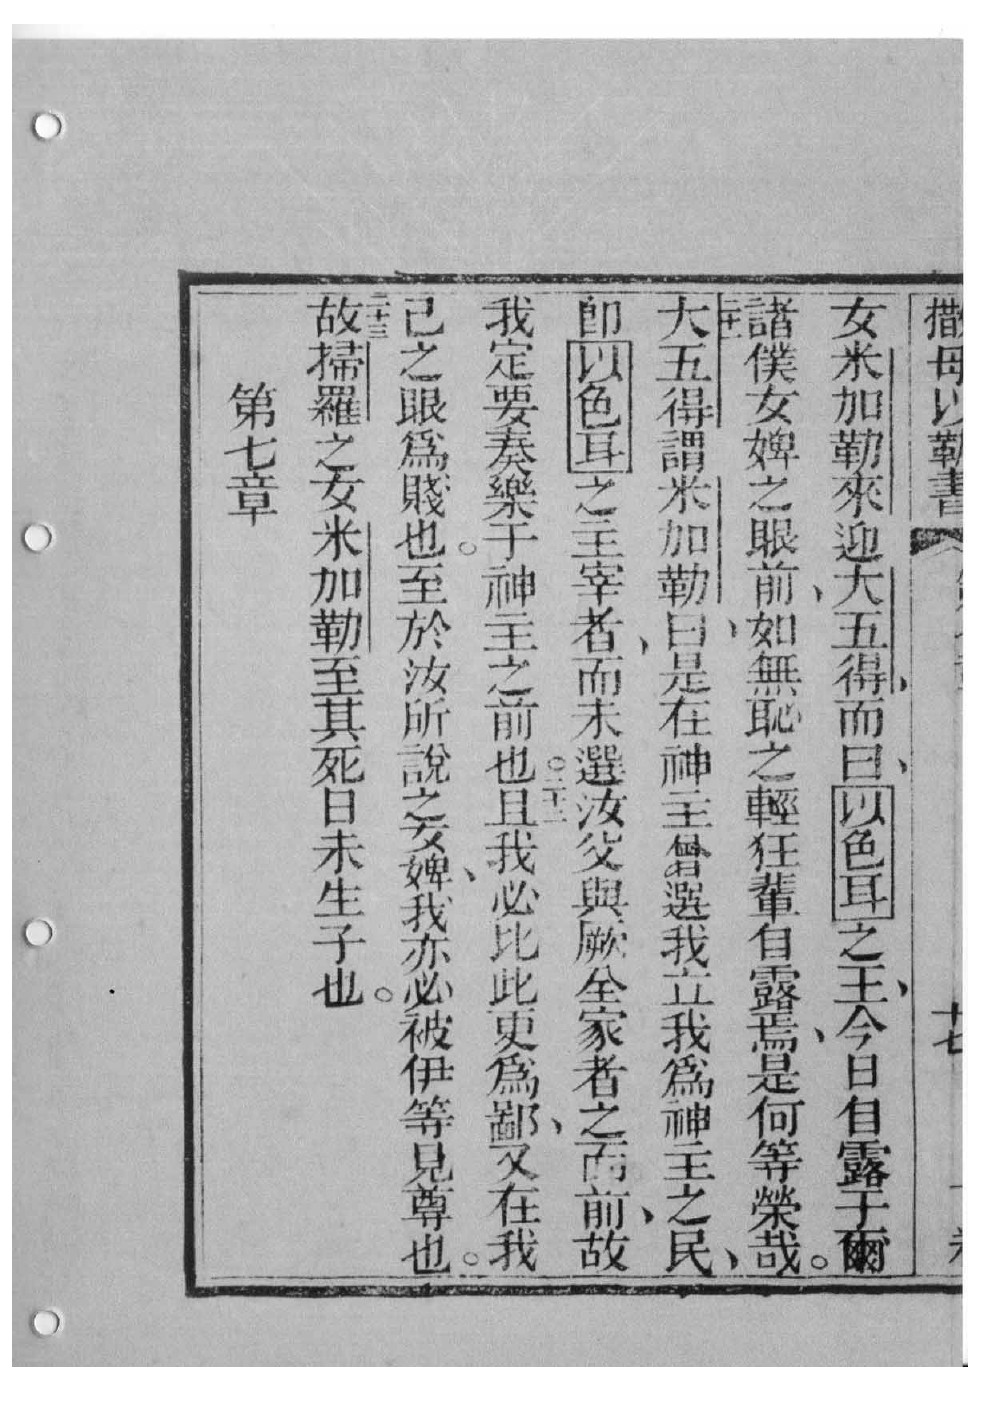 撒母以勒書
十七
女米加勒來迎大五得、而曰、以色耳之王、今日自露于爾
諸僕女婢之眼前、如無恥之輕狂輩自露焉、是何等榮哉。
二十一大五得謂米加勒曰、是在神主曾選我立我為神主之民、
卽以色耳之主宰者、而未選汝父與厥全家者之面前、故
我定要奏樂于神主之前也。二十二且我必比此更為鄙、又在我
己之眼為賤也。至於汝所說之女婢、我亦必被伊等見尊也。
二十三故掃羅之女米加勒至其死日未生子也。
第七章